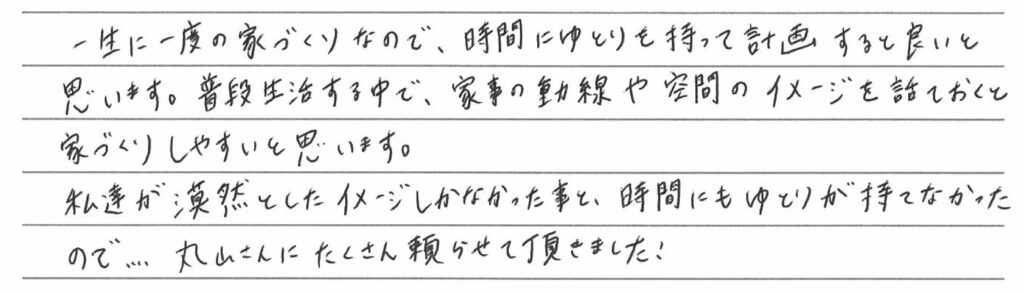 一生に一度の家づくりなので、時間にゆとりを持って計画すると良いと
思います。普段生治する中で、家事の動線や空間のイメージを話ておくと
家づくりしやすいと思います。
私達が漠然としたイメージしかなかった事と、時間にもゆとりが持てなかった
ので.... 丸山さんにたくさん頼らせて頂きました!